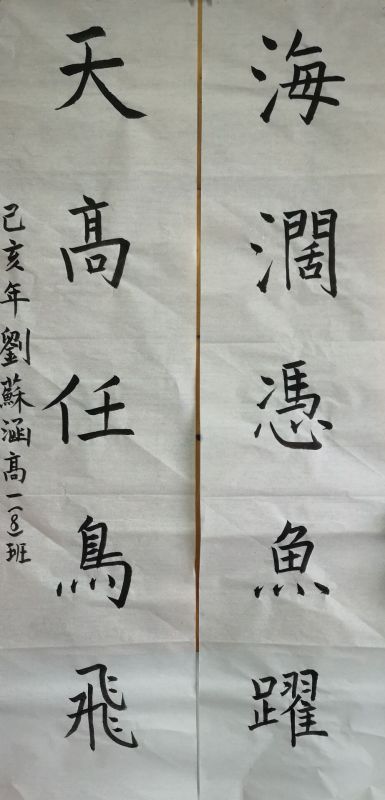 海濶憑魚躍
天高任鳥飛
己亥年劉蘇涵高一(8)班